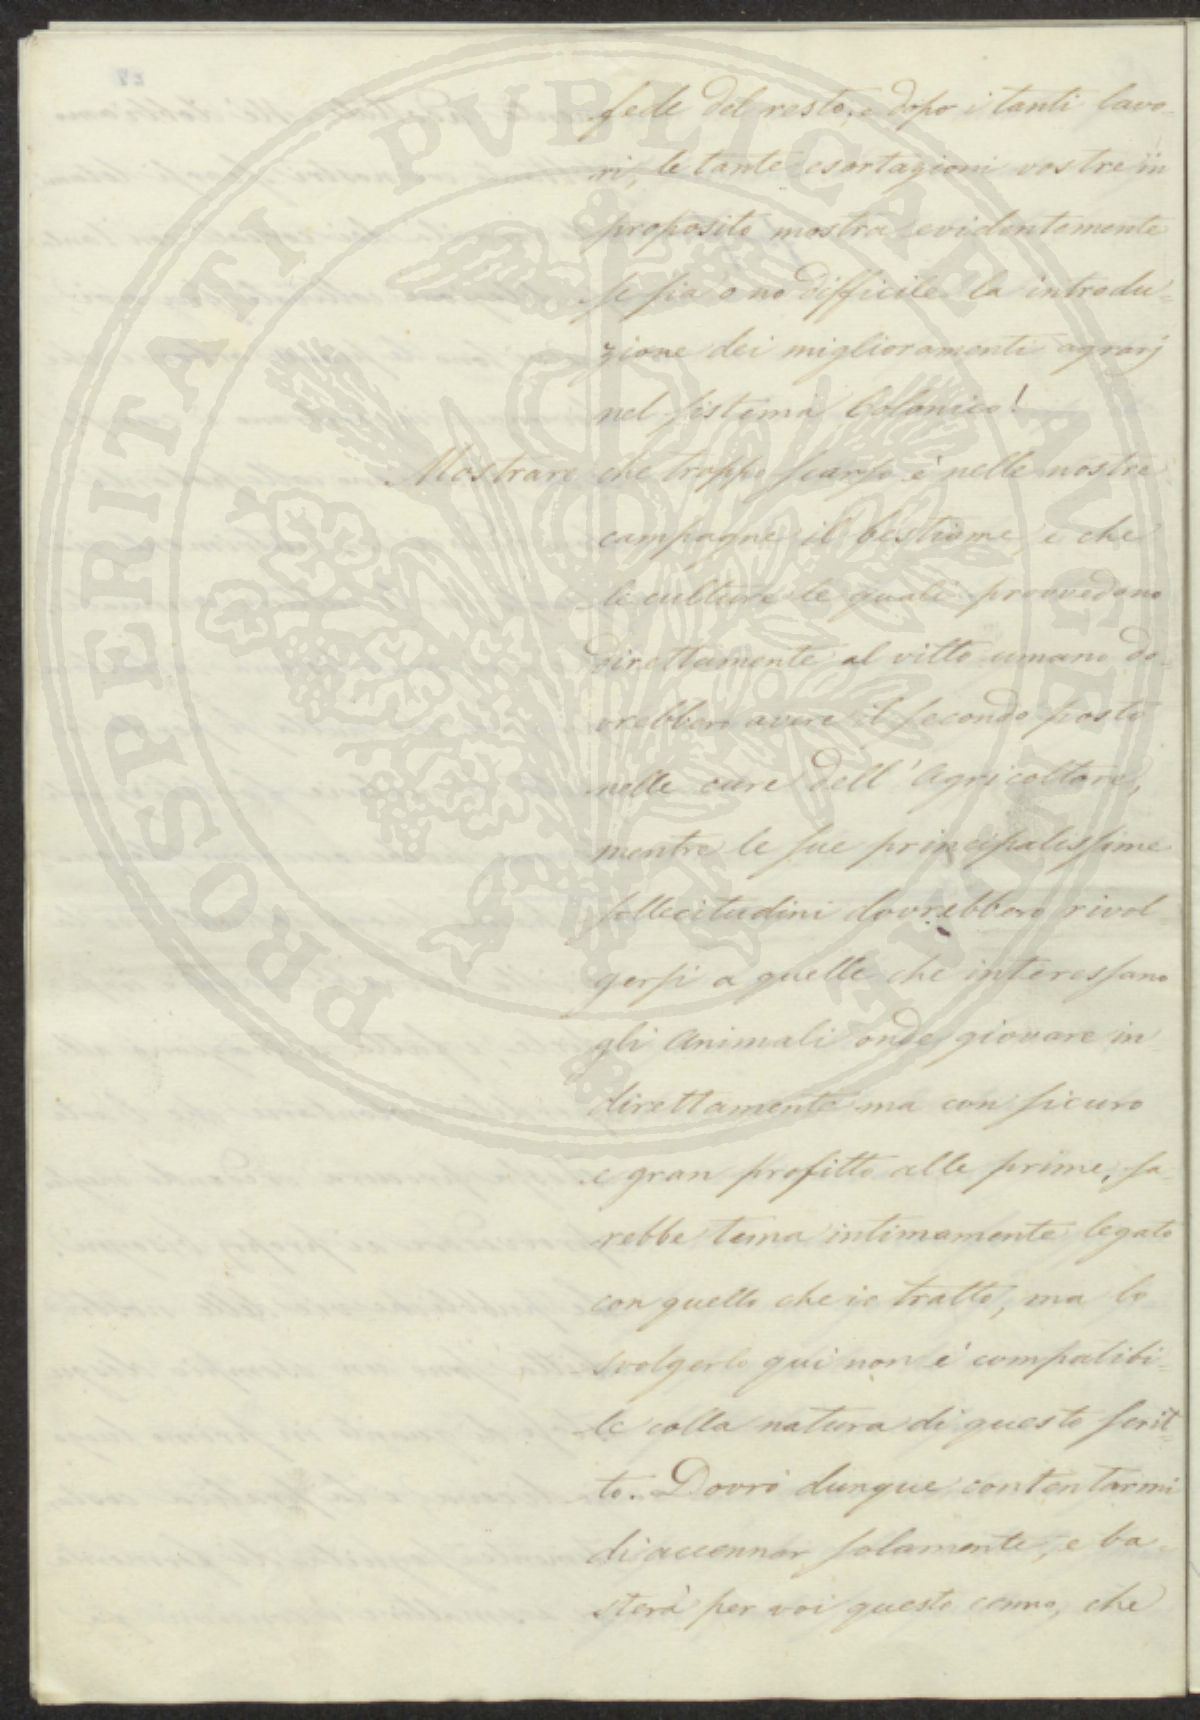 fede del resto, e dopo i tanti lavo-
ri, le tante esortazioni vostre in
proposito mostra evidentemente
se sia o no difficile la introdu-
zione dei miglioramenti agrarj
nel sistema Colonico!
Mostrare che troppo scarso è nelle nostre
campagne il bestiame, e che
le culture le quali provvedono
direttamente al vitto umano do-
vrebbero avere il secondo posto
nelle cure dell'Agricoltore,
mentre le sue principalissime
sollecitudini dovrebbero rivol-
gersi a quelle che interessano
gli Animali onde giovare in-
direttamente ma con sicuro
e gran profitto alle prime, sa-
rebbe tema intimamente legato
con quello che io tratto, ma lo
svolgerlo qui non è compatibi-
le colla natura di questo scrit-
to. Dovrò dunque contentarmi
di accennar solamente, e ba-
sterà per voi questo cenno, che
PROSPERITATI PUBLICAE AUGENDAE